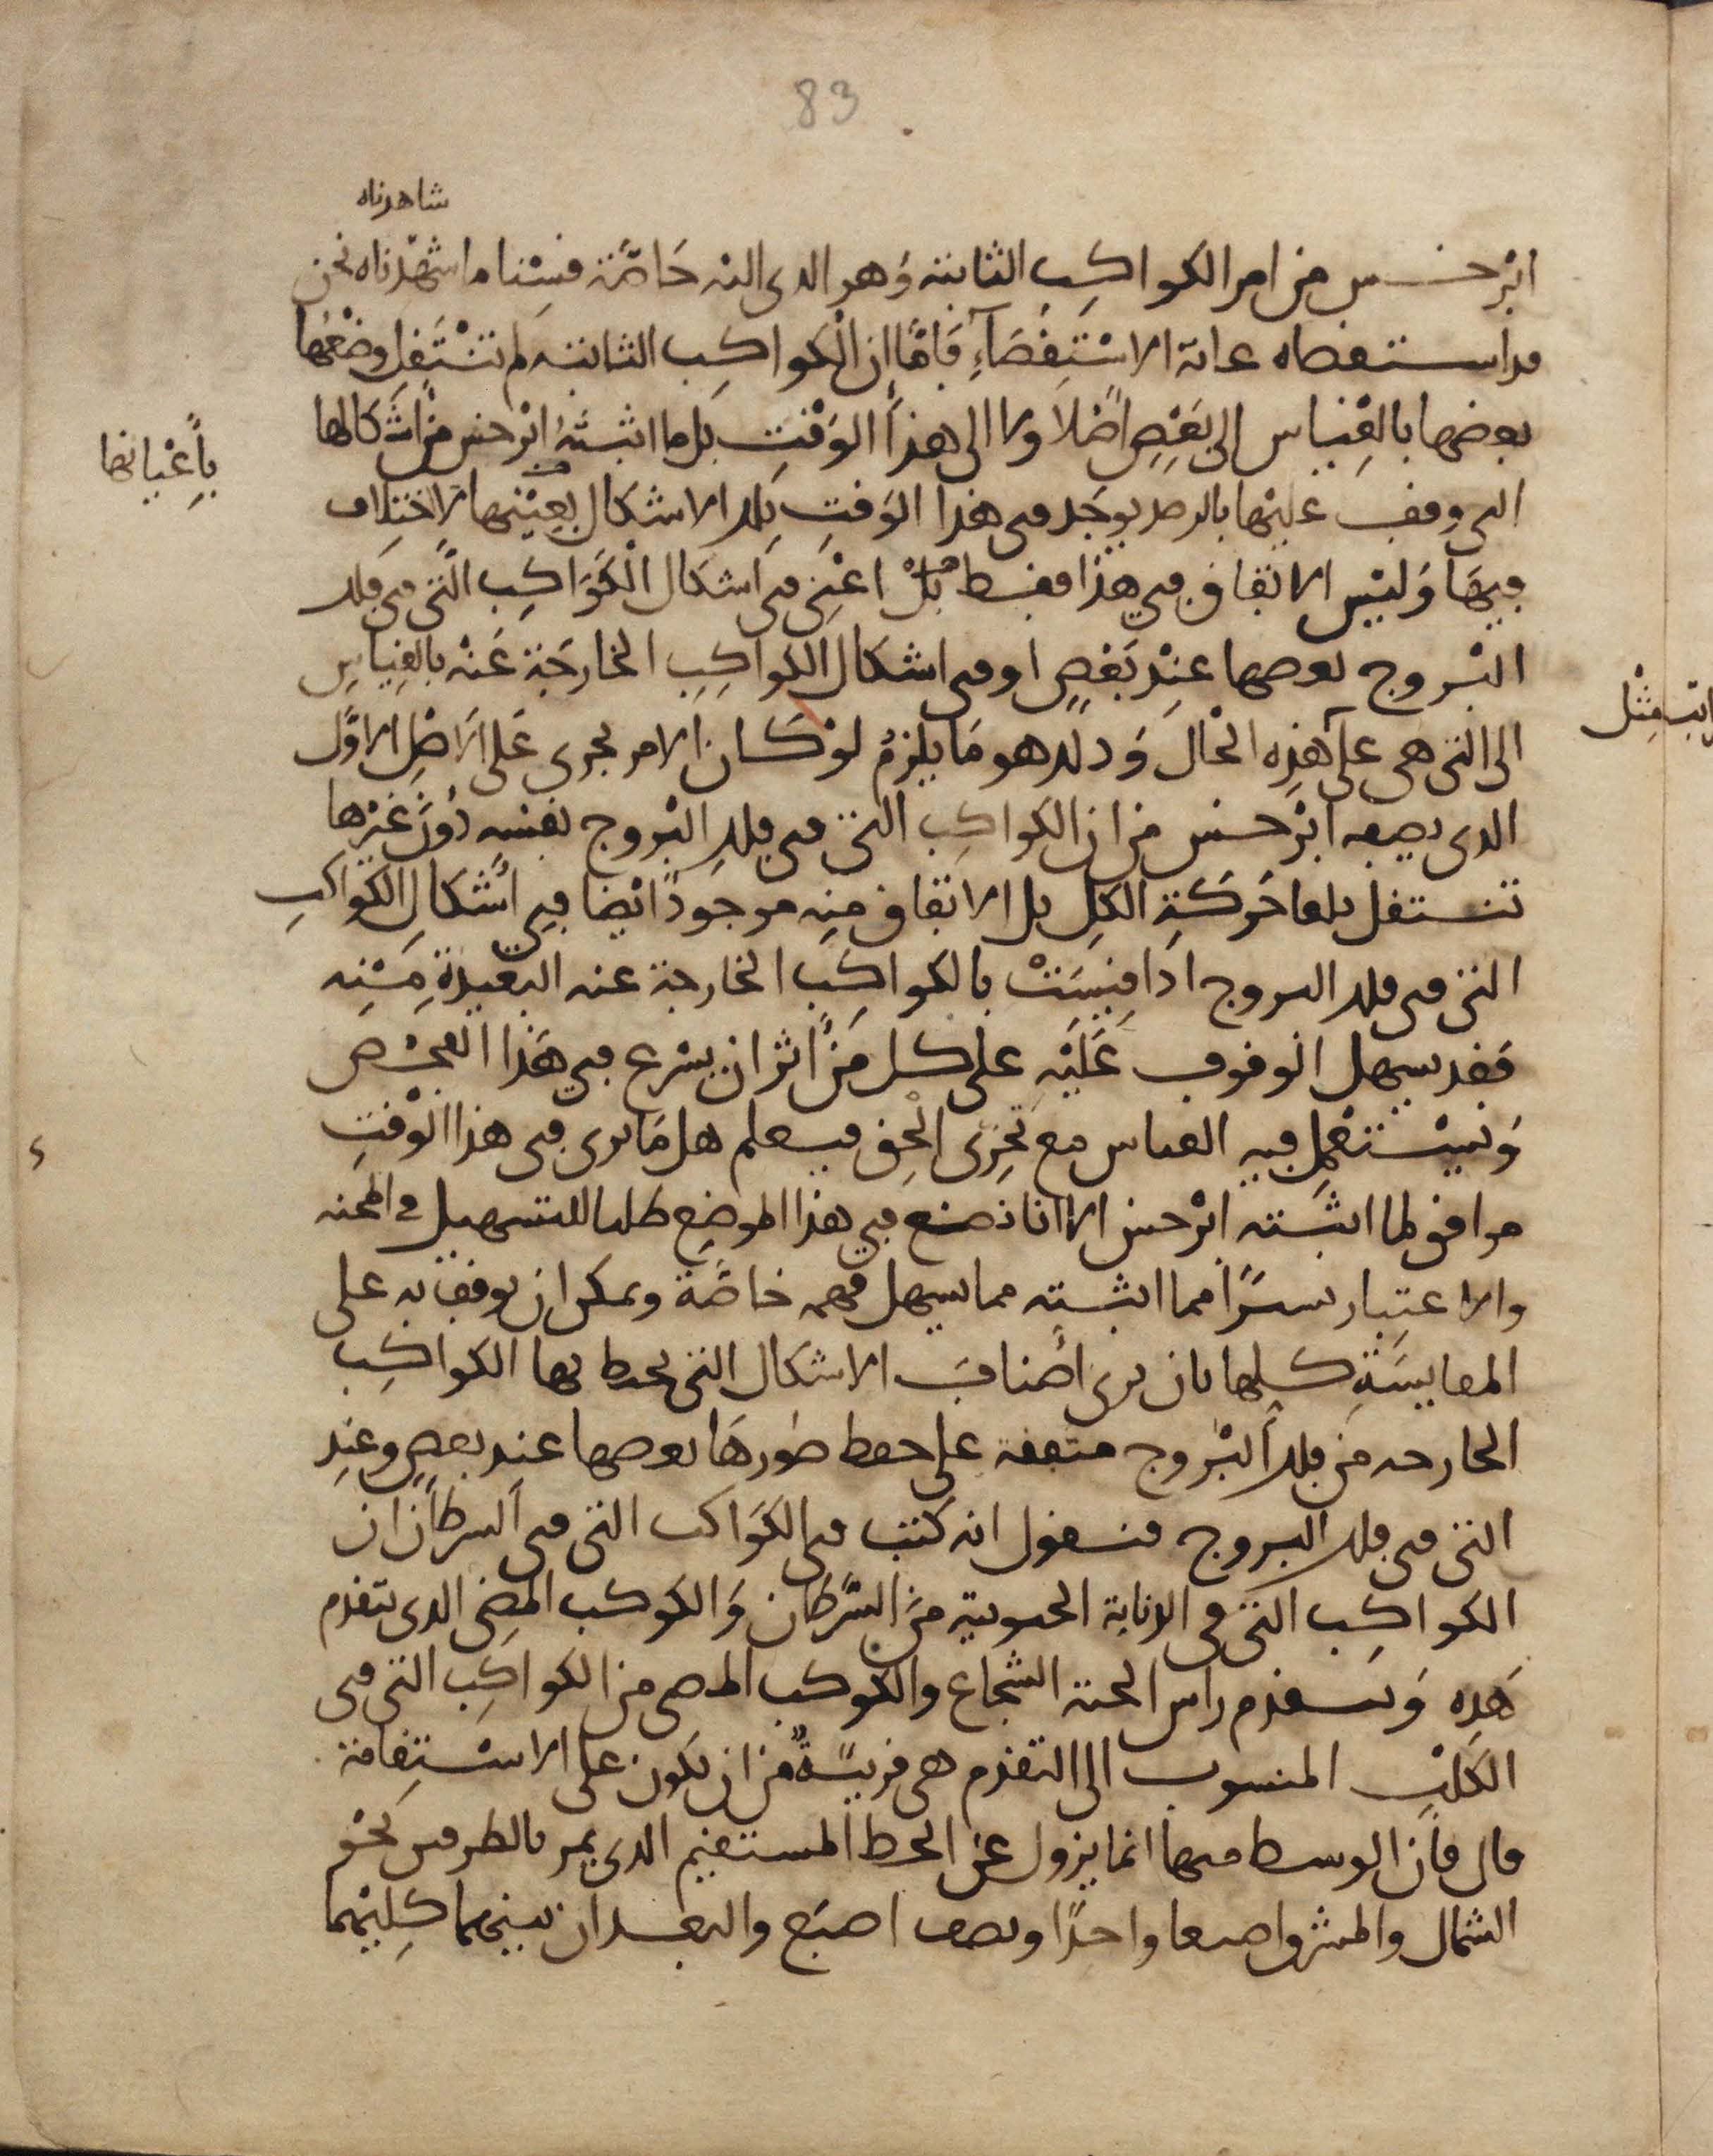 83
شاهدناه
ابرخس من امر الكواكب الثابتة وهو الذي اليه خاصة قسنا ما شهدناه نحن
قد استقصاه غاية الاستقصاء فاما ان الكواكب الثابتة لم تنتقل وضعها
بعضها بالقياس الى بعض اصلا ولا الى هذا الوقت بل ما اثبته ابرخس من اشكالها
بأعيانها
التي وقف عليها بالرصد يوجد في هذا الوقت تلك الاشكال بعينها لا اختلاف
فيها وليس الاتفاق في هذا فقط بل اعني في اشكال الكواكب التي في فلك
البروج بعضها عند بعض او في اشكال الكواكب الخارجة عنه بالقياس
الى التي هي على هذه الحال وذلك هو ما يلزم لو كان الامر يجري على الاصل الاول
الذي يصفه ابرخس من ان الكواكب التي في فلك البروج نفسه دون غيرها
تنتقل تلقا حركة الكل بل الاتفاق منه موجودا ايضا في اشكال الكواكب
التي في فلك البروج اذا قيست بالكواكب الخارجة عنه البعيدة منه
فقد يسهل الوقوف عليه على كل من اثر ان يسرع في هذا الفحص
ويستعمل فيه القياس مع تحري الحق فيعلم هل ما يرى في هذا الوقت
موافق لما اثبته ابرخس الا انا نضع في هذا الموضع طلبا للتسهيل في المحنة
والاعتبار يسيرا مما اثبته مما يسهل فهمه خاصة ويمكن ان يوقف به على
المقايسة كلها بان يرى اصناف الاشكال التي يحيط بها الكواكب
الخارجة من فلك البروج متفقة على حفظ صورها بعضها عند بعض وعند
التي في فلك البروج فنقول انه كتب في الكواكب التي في السرطان ان
الكواكب التي في الزبانة الجنوبية من السرطان والكوكب المضي الذي يتقدم
هذه ويتقدم راس الحية الشجاع والكوكب المضي من الكواكب التي في
الكلب المنسوب الى التقدم هي قريبة من ان يكون على الاستقامة
قال فان الوسط منها انما يزول عن الخط المستقيم الذي يمر بالطرفين نحو
الشمال والمشرق اصبعا واحدا ونصف اصبع والبعدان بينهما كليهما